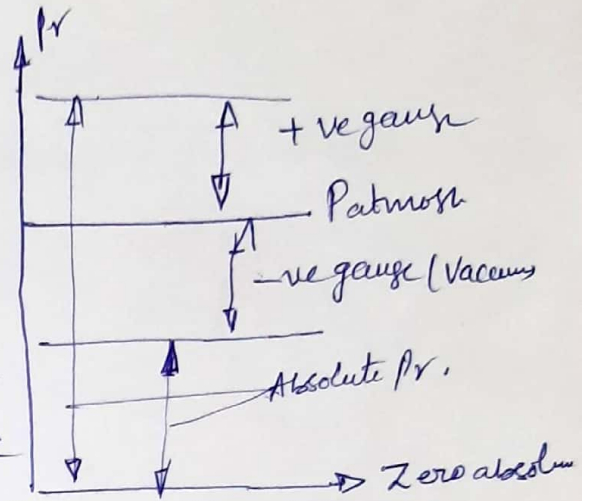 Pr
+ve gauge
Patmosh
-ve gauge (Vacuum
Absolute Pr.
Zero absolu